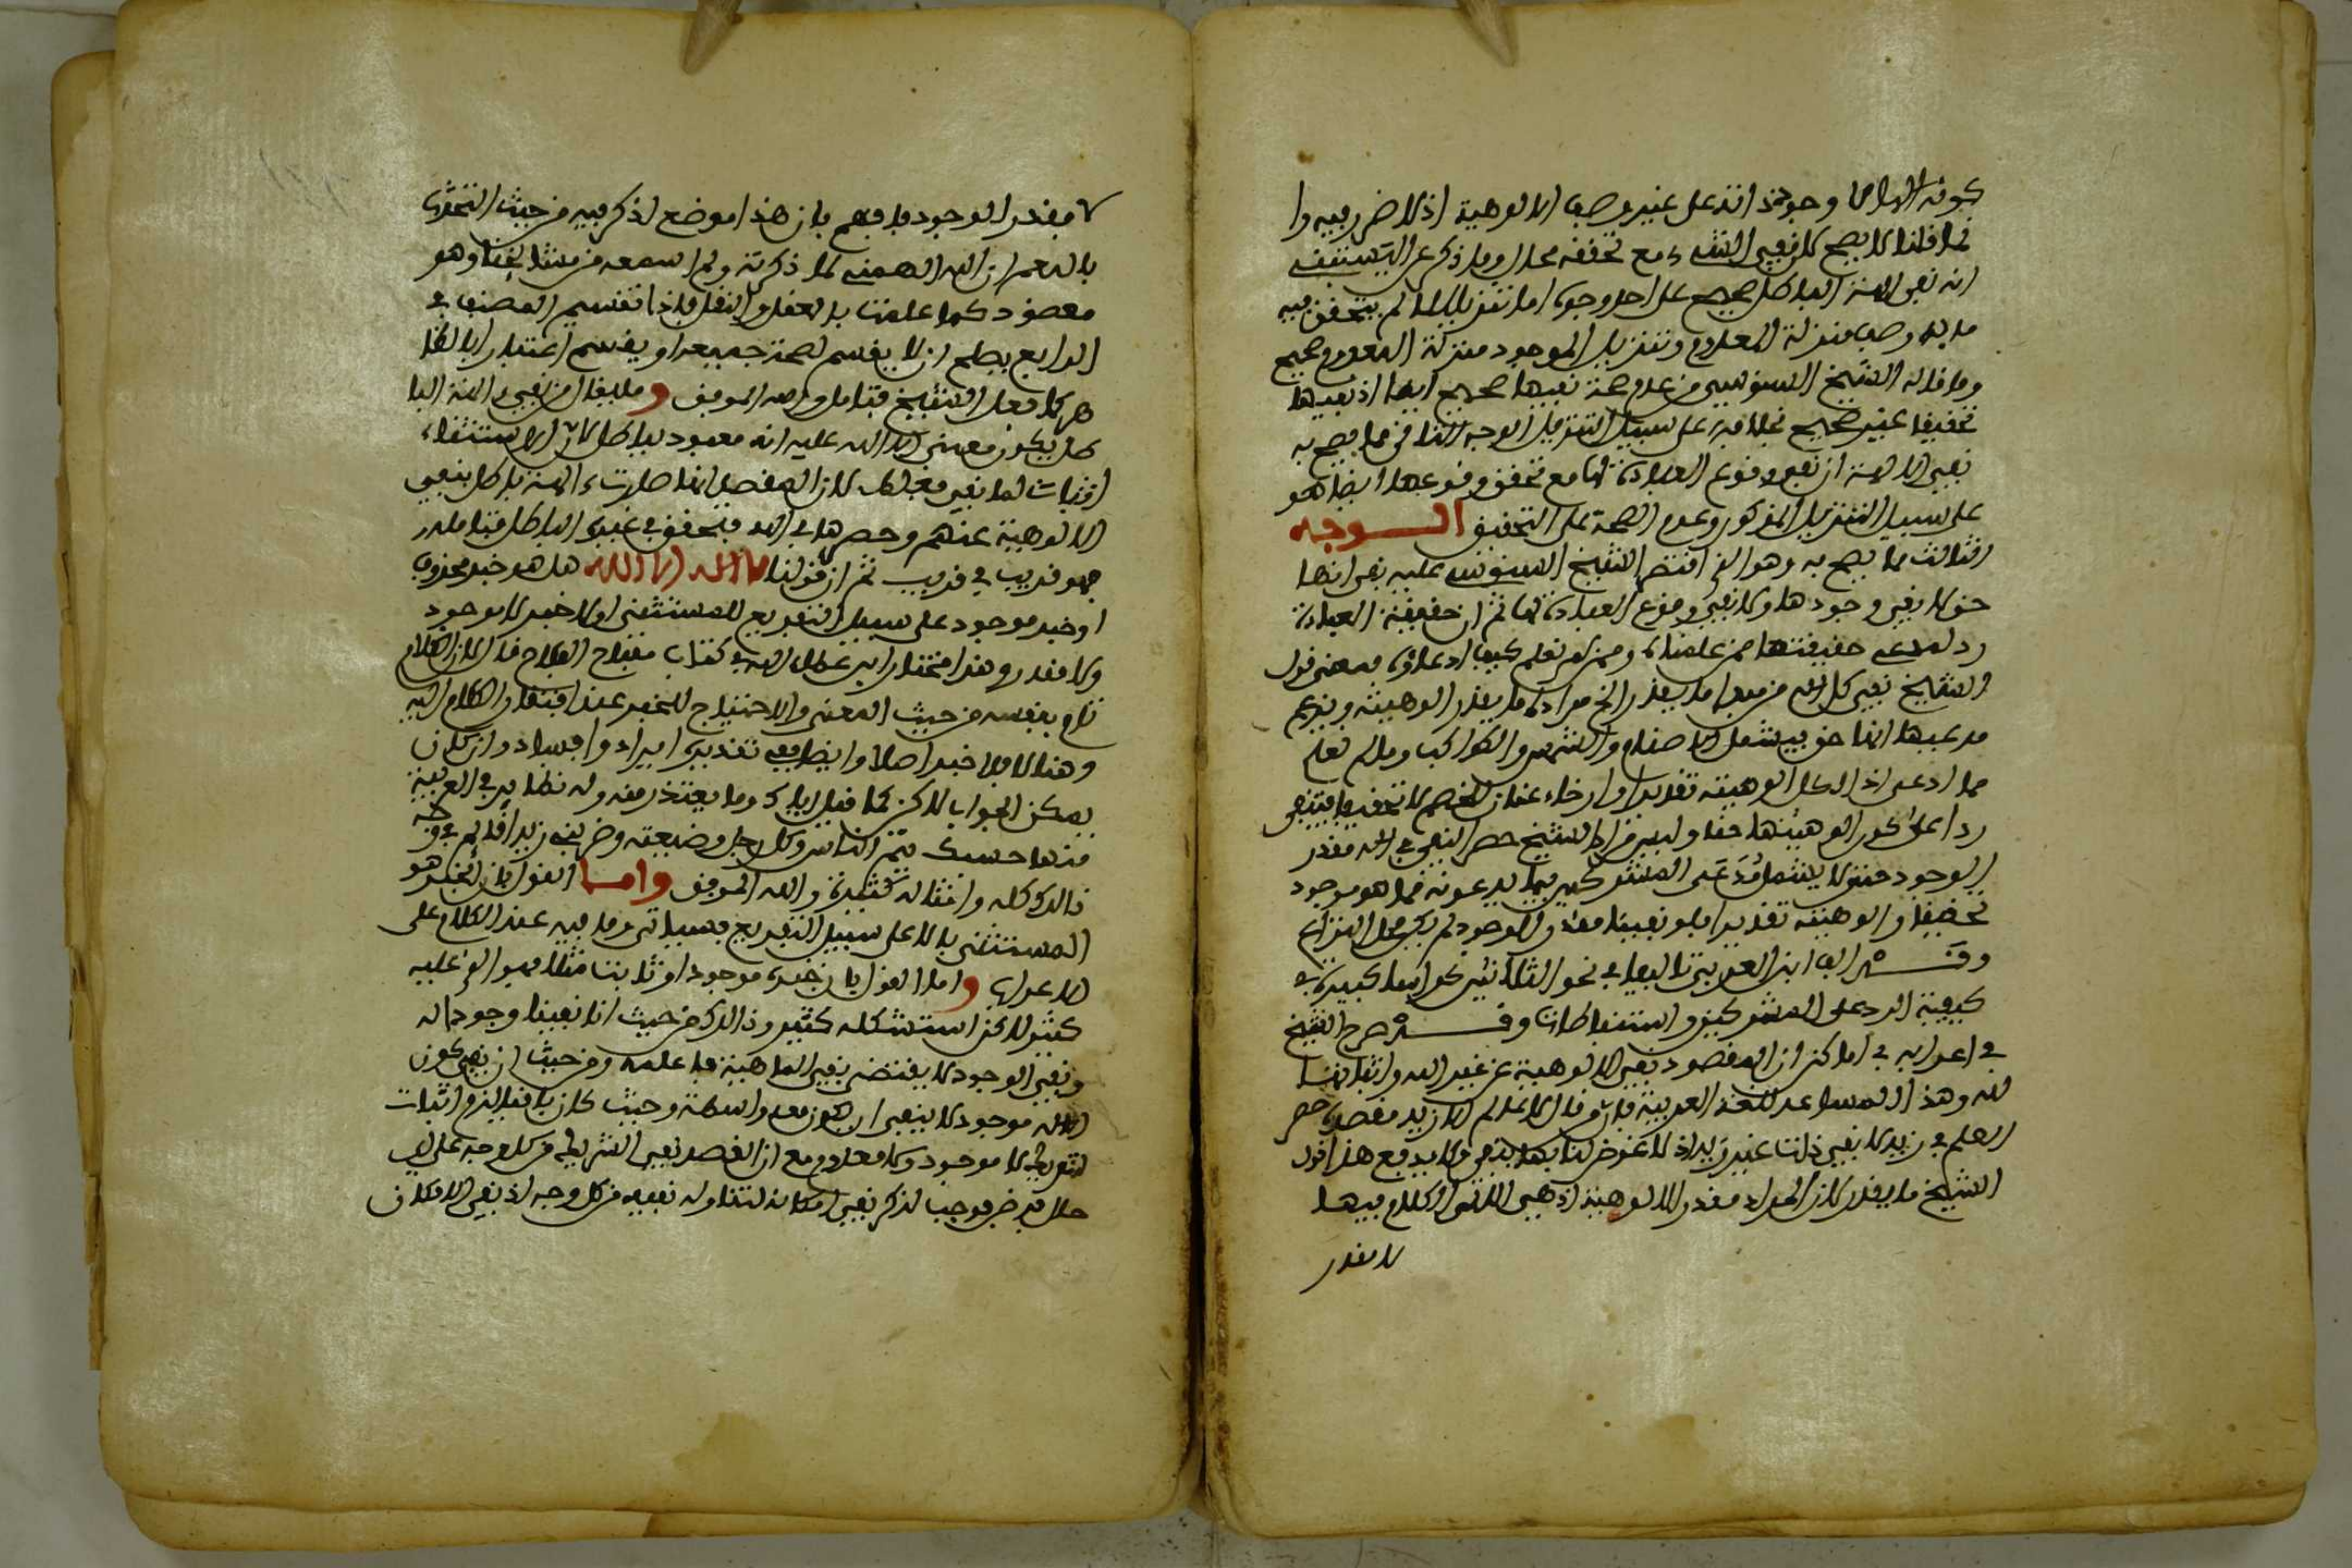 كونه الها لا وجود ذاته على غير وصف الالوهية اذ لا ضرر فيه وا
نما قلنا لا يصح لان نفي الشيء مع تحققه محال وما ذكر عن اليسيتني
ان نفي الالهة الباطل صحيح على احد وجوه اما تنزيلا لما لم يتحقق فيه
ما له وصف منزلة المعدوم وتنزيل الموجود منزلة المعدوم صحيح
وما قاله الشيخ السنوسي من عدم صحة نفيها صحيح ايضا اذ نفيها
تحقيقا غير صحيح بخلافه على سبيل التنزيل الوجه الثاني مما يصح به
نفي الالهة ان نفي وقوع العبادة لها مع تحقق وقوعها ايضا هو
على سبيل التنزيل المذكور وعدم الصحة على التحقيق الوجه
الثالث مما يصح به وهو الذي اقتصر الشيخ السنوسي عليه نفي انها
حق لا نفي وجودها ولا نفي وقوع العبادة لها ثم ان حقيقة العبادة
رد لمدعي حقيقتها ممن علمناه وممن لم نعلم كيف ادعاؤه فمعنى قول
الشيخ نفي كل اله من فيه ما يقدر الخ مراده ما يقدر الوهيته ويزعم
مدعيها انها حق فيشمل الاصنام والشمس والكواكب وما لم نعلم
مما ادعى اذ الكل الوهيته تقديرا وارخاء عنان للخصم لا تحقيقا فتنفى
ردا على كون الوهيتها حقا وليس مراد الشيخ حصر النفي في اله مقدر
الوجود حتى لا يشتمل مدعى المشركين فيما يدعونه مما هو موجود
تحقيقا والوهيته تقديرا فلو نفينا مقدر الوجود لم يكن محل النزاع
وقد الف ابن العربي تاليفا في نحو الثلاثين كراسا كبيرة في
كيفية الرد على المشركين واستنباطات وقد صرح الشيخ
في اعرابه في اماكن ان المقصود نفي الالوهية عن غير الله واثباتها
لله وهذا المساعد للغة العربية فان من قال لا عالم الا زيد مقصده حصر
العلم في زيد لا نفي ذات غير زيد اذ لا غرض لنا بها بنفي ولا يدفع هذا قول
الشيخ ما يقدر لان المراد مقدر الالوهية اذ هي التي الكلام فيها
لا مقدر
لا مقدر الوجود فافهم فان هذا موضع اذكر فيه من حيث التحدث
بالنعم ان الله الهمني لما ذكرته ولم اسمعه من مشايخنا وهو
معضود كما علمت بالعقل والنقل فاذا تقسيم المصنف في
الرابع يصلح ان لا يقسم لصحة جميعه او يقسم اعتبار الا لظا
هر كما فعل الشيخ فتامل والله الموفق وما يقال من نفي الالهة البا
طل يكون معنى الا الله عليه انه معبود بباطل لان الاستثناء
اثبات لما نفي فباطل لان المفصل انها صارت الهة باطل بنفي
الالوهية عنهم وحصرها في الله فيتحقق في غيره الباطل فتامله
فهو قريب في قريب ثم ان قولنا لا اله الا الله هل هو خبر محذوف
او خبر موجود على سبيل التفريع للمستثنى او لا خبر لا موجود
ولا مقدر وهذا مختار ابن عطاء الله في كتاب مفتاح الفلاح قال لان الكلام
تام بنفسه من حيث المعنى والاحتياج للخبر عند افتقار الكلام اليه
وهذا لا فلا خبر اصلا وايضا ففي تقديره ايراد وافساد وان كان
يمكن الجواب لاكن كما قيل اياك وما يعتذر منه وله نظاير في العربية
منها حسبك يتم الناس وكل رجل وضيعته وضربي زيدا قائما في وجه
ذالك كله وامثاله كثيرة والله الموفق واما القول بان الخبر هو
المستثنى بالا على سبيل التفريع فسياتي وما فيه عند الكلام على
الاعراب واما القول بان خبره موجود او ثابت مثلا فهو الذي عليه
كثير لاكن استشكله كثير وذالك من حيث انا نفينا وجود اله
ونفي الوجود لا يقتضي نفي الماهية فلا علمه ومن حيث ان نفي كون
الاله موجود لا ينفي ان يكون معدوما واسطة وحيث كان بافعاليه واثبات
لشريك لا موجود ولا معدوم مع ان القصد نفي الشريك من كل وجه على اي
حال قد ضر فوجب لذكر نفي امكانه لتناوله نفيه من كل وجه اذ نفي الامكان